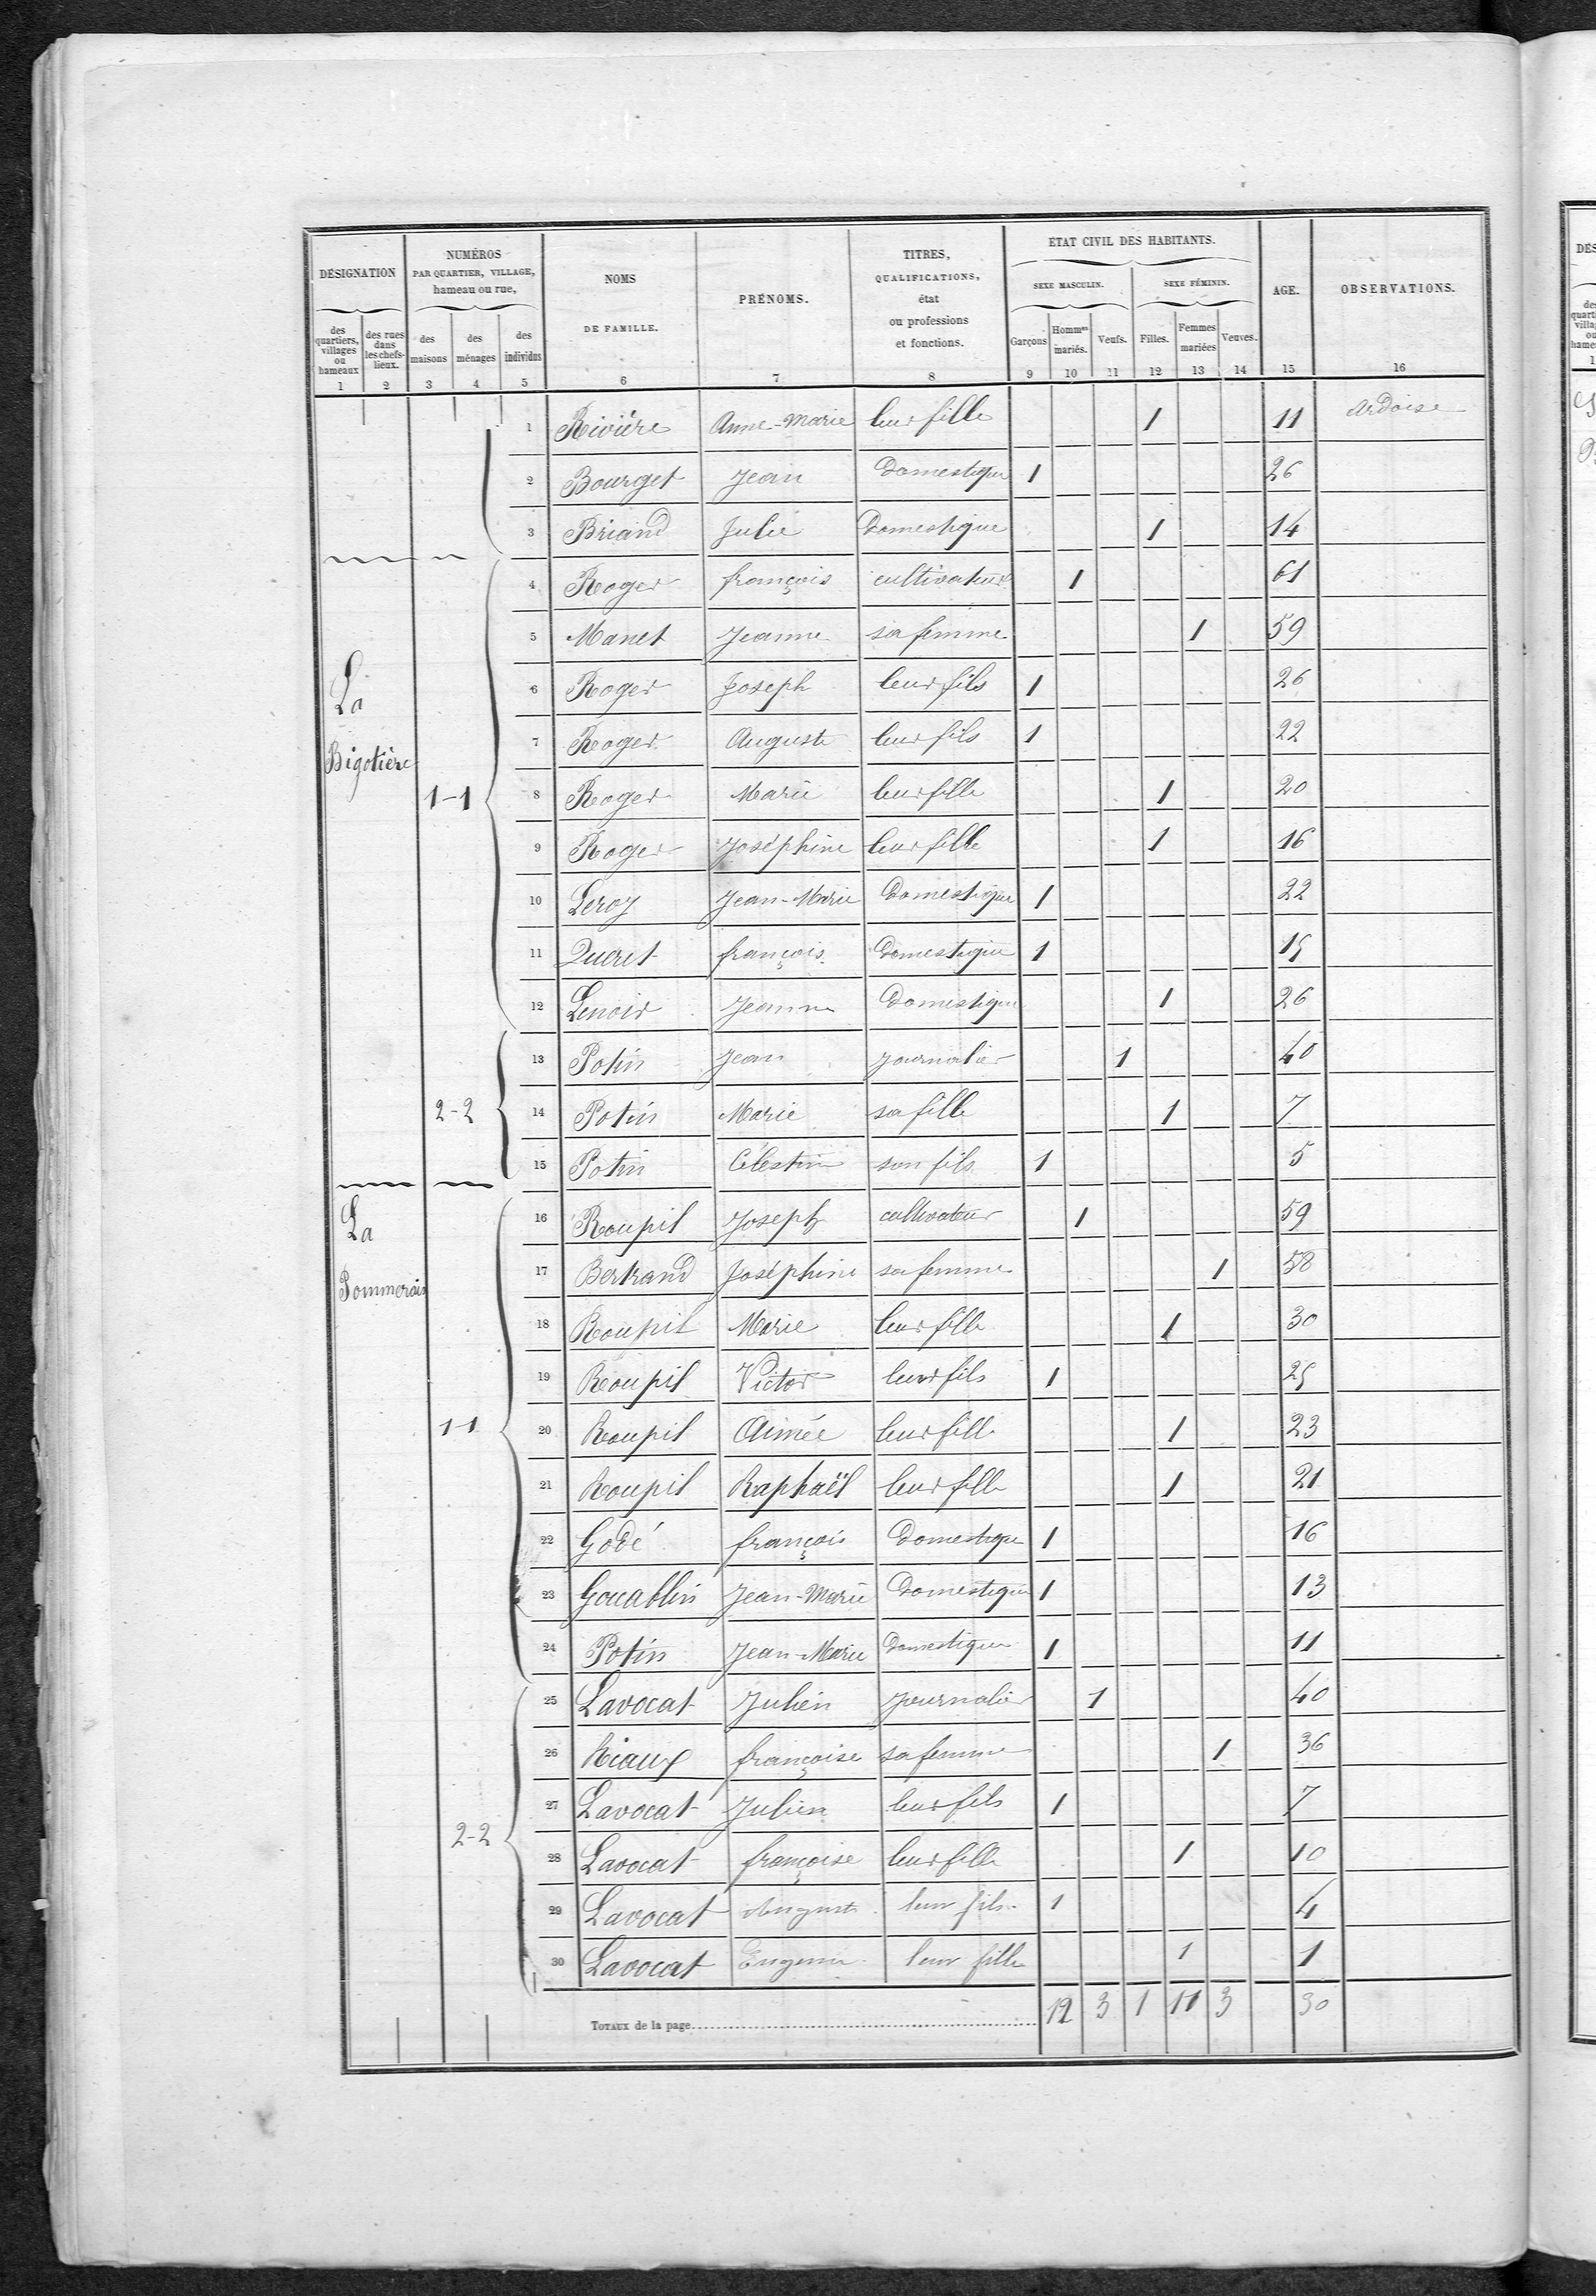 DÉSIGNATION
des quartiers, villages ou hameaux
des rues dans les chefs-lieux.
NUMÉROS
PAR QUARTIER, VILLAGE,
hameau ou rue,
des maisons
des ménages
des individus
NOMS
DE FAMILLE.
PRÉNOMS.
TITRES,
QUALIFICATIONS,
état
ou professions
et fonctions.
ÉTAT CIVIL DES HABITANTS.
SEXE MASCULIN.
SEXE FÉMININ.
Garçons
Hommes mariés.
Veufs.
Filles.
Femmes mariées
Veuves.
AGE.
OBSERVATIONS.
1 2 3 4 5 6 7 8 9 10 11 12 13 14 15 16
1 Rivière Anne-Marie leur fille 1 11 ardoise
2 Bourget Jean Domestique 1 26
3 Briand Julie Domestique 1 14
4 Roger françois cultivateur 1 61
5 Manet Jeanne sa femme 1 59
La
6 Roger Joseph leur fils 1 26
7 Roger Auguste leur fils 1 22
Bigotière
1-1
8 Roger Marie leur fille 1 20
9 Roger Joséphine leur fille 1 16
10 Leroy Jean-Marie Domestique 1 22
11 Queret françois Domestique 1 15
12 Lenoir Jeanne Domestique 1 26
13 Potin Jean journalier 1 40
2-2
14 Potin Marie sa fille 1 7
15 Potin Célestin son fils 1 5
La
16 Roupil Joseph cultivateur 1 59
Pommerais
17 Bertrand Joséphine sa femme 1 58
18 Roupil Marie leur fille 1 30
19 Roupil Victor leur fils 1 25
1-1
20 Roupil Aimée leur fille 1 23
21 Roupil Raphaël leur fille 1 21
22 Godé françois Domestique 1 16
23 Gouablin Jean-Marie Domestique 1 13
24 Potin Jean-Marie Domestique 1 11
25 Lavocat Julien Journalier 1 40
26 Riaux françoise sa femme 1 36
27 Lavocat Julien leur fils 1 7
2-2
28 Lavocat françoise leur fille 1 10
29 Lavocat Auguste leur fils 1 4
30 Lavocat Eugenie leur fille 1 1
TOTAUX de la page 12 3 1 11 3 30